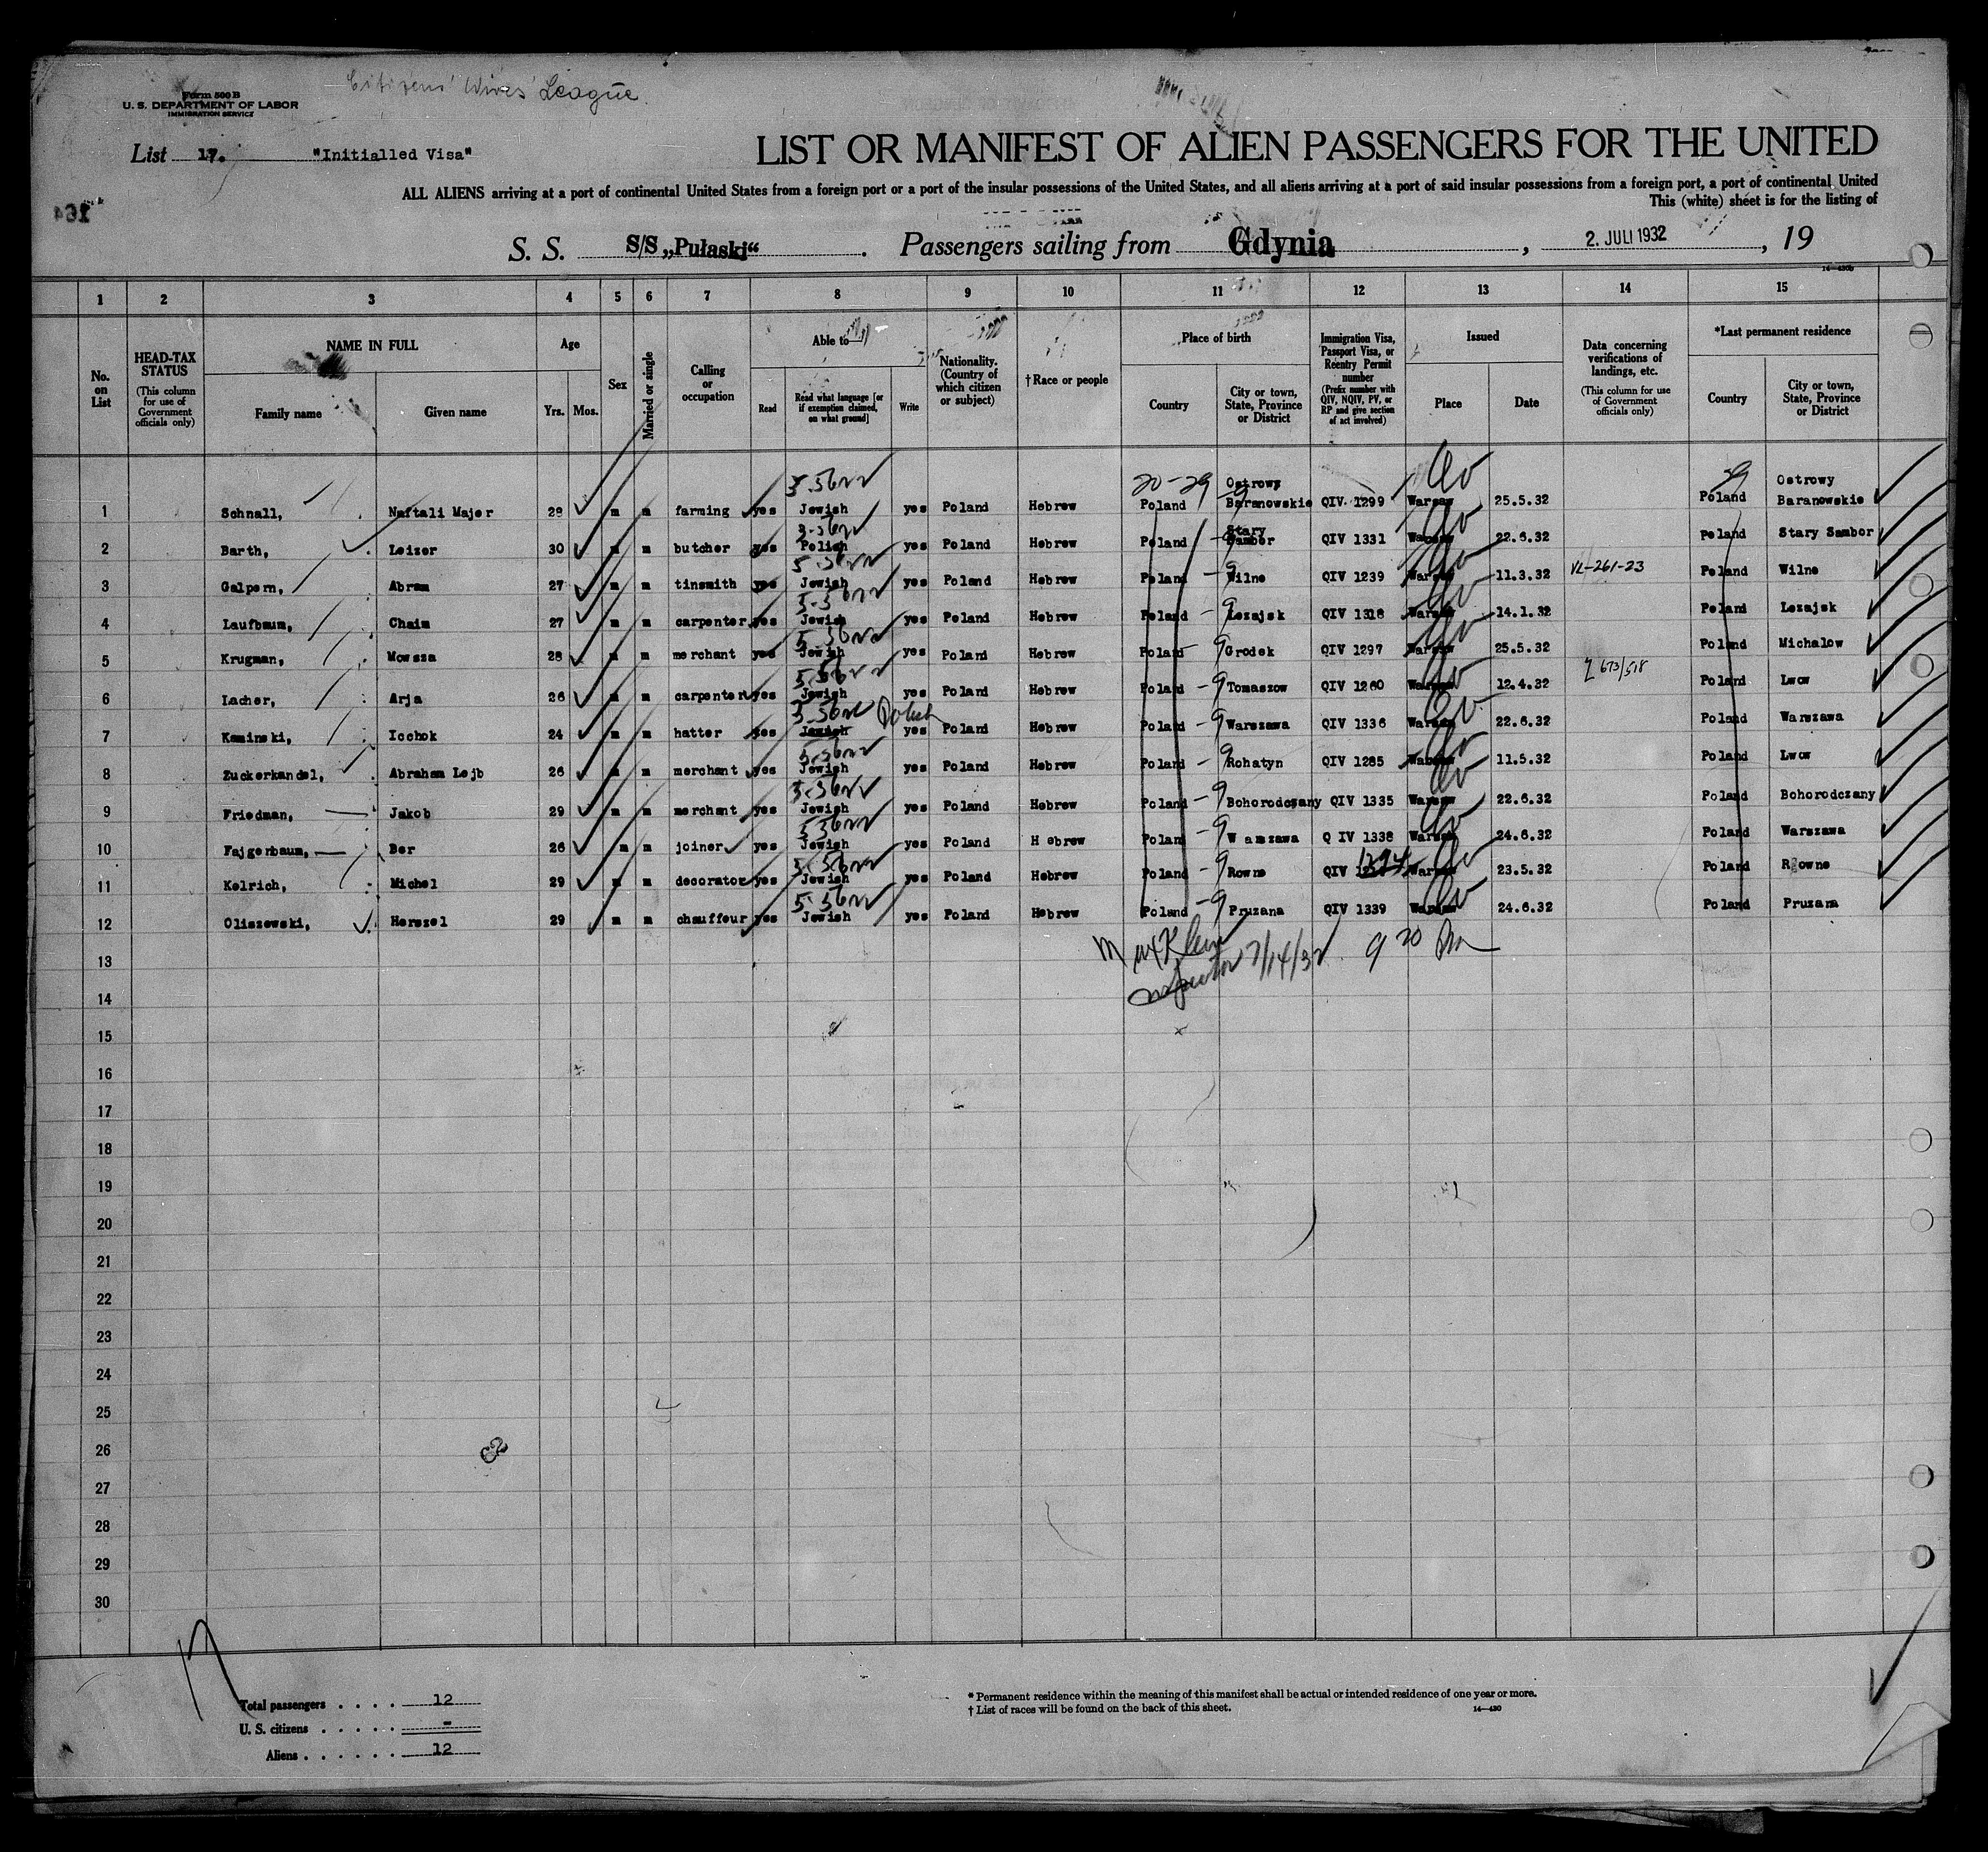 Citizens' Wives' League.
Form 500 B
U. S. DEPARTMENT OF LABOR
IMMIGRATION SERVICE
List 17. "Initialled Visa"
LIST OR MANIFEST OF ALIEN PASSENGERS FOR THE UNITED
ALL ALIENS arriving at a port of continental United States from a foreign port or a port of the insular possessions of the United States, and all aliens arriving at a port of said insular possessions from a foreign port, a port of continental United
This (white) sheet is for the listing of
164
S. S. S/S „Pułaski“. Passengers sailing from Gdynia, 2. JULI 1932, 19
14—430b
1 2 3 4 5 6 7 8 9 10 11 12 13 14 15
No. on List
HEAD-TAX STATUS
(This column for use of Government officials only)
NAME IN FULL
Family name Given name
Age
Yrs. Mos.
Sex
Married or single
Calling or occupation
Able to
Read Read what language [or if exemption claimed, on what ground] Write
Nationality. (Country of which citizen or subject)
† Race or people
Place of birth
Country City or town, State, Province or District
Immigration Visa, Passport Visa, or Reentry Permit number
(Prefix number with QIV, NQIV, PV, or RP and give section of act involved)
Issued
Place Date
Data concerning verifications of landings, etc.
(This column for use of Government officials only)
*Last permanent residence
Country City or town, State, Province or District
1 Schnall, Naftali Majer 28 m m farming yes Jewish yes Poland Hebrew Poland Ostrowy Baranowskie QIV. 1299 Warsaw 25.5.32 Poland Ostrowy Baranowskie
2 Barth, Leizer 30 m m butcher yes Polish yes Poland Hebrew Poland Stary Sambor QIV 1331 Warsaw 22.6.32 Poland Stary Sambor
3 Galpern, Abram 27 m m tinsmith yes Jewish yes Poland Hebrew Poland Wilno QIV 1239 Warsaw 11.3.32 VL-261-23 Poland Wilno
4 Laufbaum, Chaim 27 m m carpenter yes Jewish yes Poland Hebrew Poland Lezajsk QIV 1318 Warsaw 14.1.32 Poland Lezajsk
5 Krugman, Mowsza 28 m m merchant yes Jewish yes Poland Hebrew Poland Grodek QIV 1297 Warsaw 25.5.32 Poland Michalow
6 Lacher, Arja 26 m m carpenter yes Jewish yes Poland Hebrew Poland Tomaszow QIV 1260 Warsaw 12.4.32 673/518 Poland Lwow
7 Kaminski, Icchok 24 m m hatter yes Jewish Polish yes Poland Hebrew Poland Warszawa QIV 1336 Warsaw 22.6.32 Poland Warszawa
8 Zuckerkandel, Abraham Lejb 26 m m merchant yes Jewish yes Poland Hebrew Poland Rohatyn QIV 1285 Warsaw 11.5.32 Poland Lwow
9 Friedman, Jakob 29 m m merchant yes Jewish yes Poland Hebrew Poland Bohorodczany QIV 1335 Warsaw 22.6.32 Poland Bohorodczany
10 Fajgerbaum, Ber 26 m m joiner yes Jewish yes Poland Hebrew Poland Warszawa Q IV 1338 Warsaw 24.6.32 Poland Warszawa
11 Kelrich, Michel 29 m m decorator yes Jewish yes Poland Hebrew Poland Rowno QIV 1294 Warsaw 23.5.32 Poland Rowne
12 Oliszewski, Herszel 29 m m chauffeur yes Jewish yes Poland Hebrew Poland Pruzana QIV 1339 Warsaw 24.6.32 Poland Pruzana
Max Klein
Inspector 7/14/32 9 20 Am
13
14
15
16
17
18
19
20
21
22
23
24
25
26
27
28
29
30
Total passengers . . . . 12
U. S. citizens . . . . . -
Aliens . . . . . . 12
* Permanent residence within the meaning of this manifest shall be actual or intended residence of one year or more.
† List of races will be found on the back of this sheet. 14—430